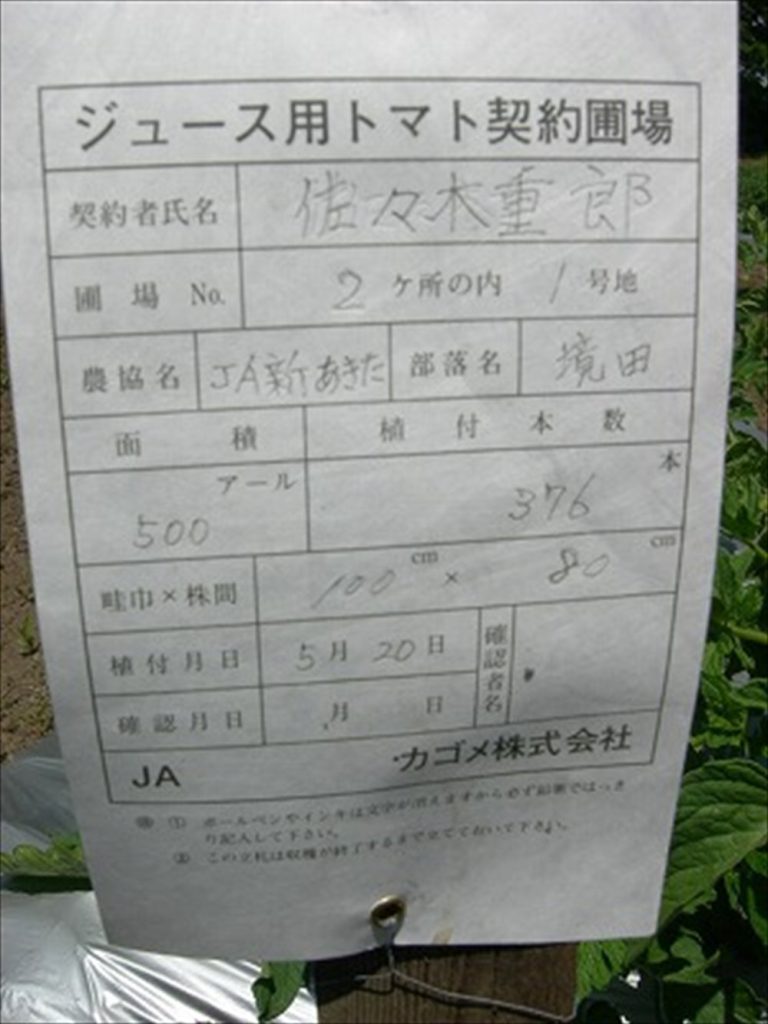 ジュース用トマト契約圃場
契約者氏名 佐々木重郎
圃場 No. 2 ヶ所の内 1 号地
農協名 JA新あきた 部落名 境田
面積 植付本数
アール 500 本 376
畦巾×株間 100 cm × 80 cm
植付月日 5月 20日 確認者名
確認月日 月 日
JA カゴメ株式会社
㊟ ① ボールペンやインキは文字が消えますから必ず鉛筆ではっき
り記入して下さい。
② この立札は収穫が終了するまで立てておいて下さい。